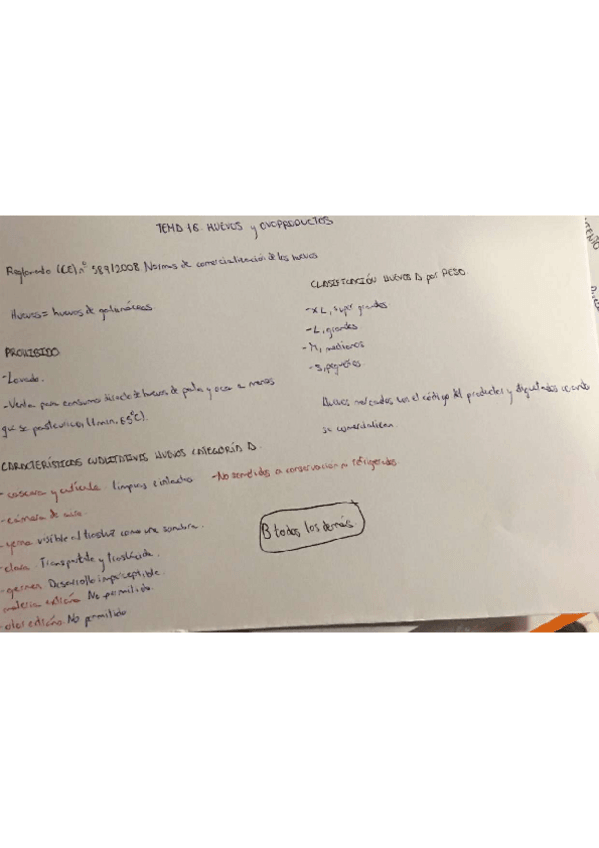 TEMA 16. HUEVOS y OVOPRODUCTOS
Reglamento (CE) nº 589/2008 Normas de comercialización de los huevos
Huevos = huevos de gallináceas
PROHIBIDO
- Lavado.
- Venta para consumo directo de huevos de pata y oca a menos
que se pasteuricen (1min, 65ºC).
CARACTERÍSTICAS CUALITATIVAS HUEVOS CATEGORÍA A.
- cáscara y cutícula limpias e intactas - No sometidos a conservación ni refrigerados
- cámara de aire.
- yema visible al trasluz como una sombra.
- clara Transparente y traslúcida.
- germen Desarrollo imperceptible.
materia extraña No permitida.
- olor extraño No permitido
CLASIFICACIÓN HUEVOS A por PESO
- XL, super grandes
- L, grandes
- M, medianos
- S, pequeños.
Huevos marcados con el código del productor y etiquetados cuando
se comercialicen
B todos los demás.